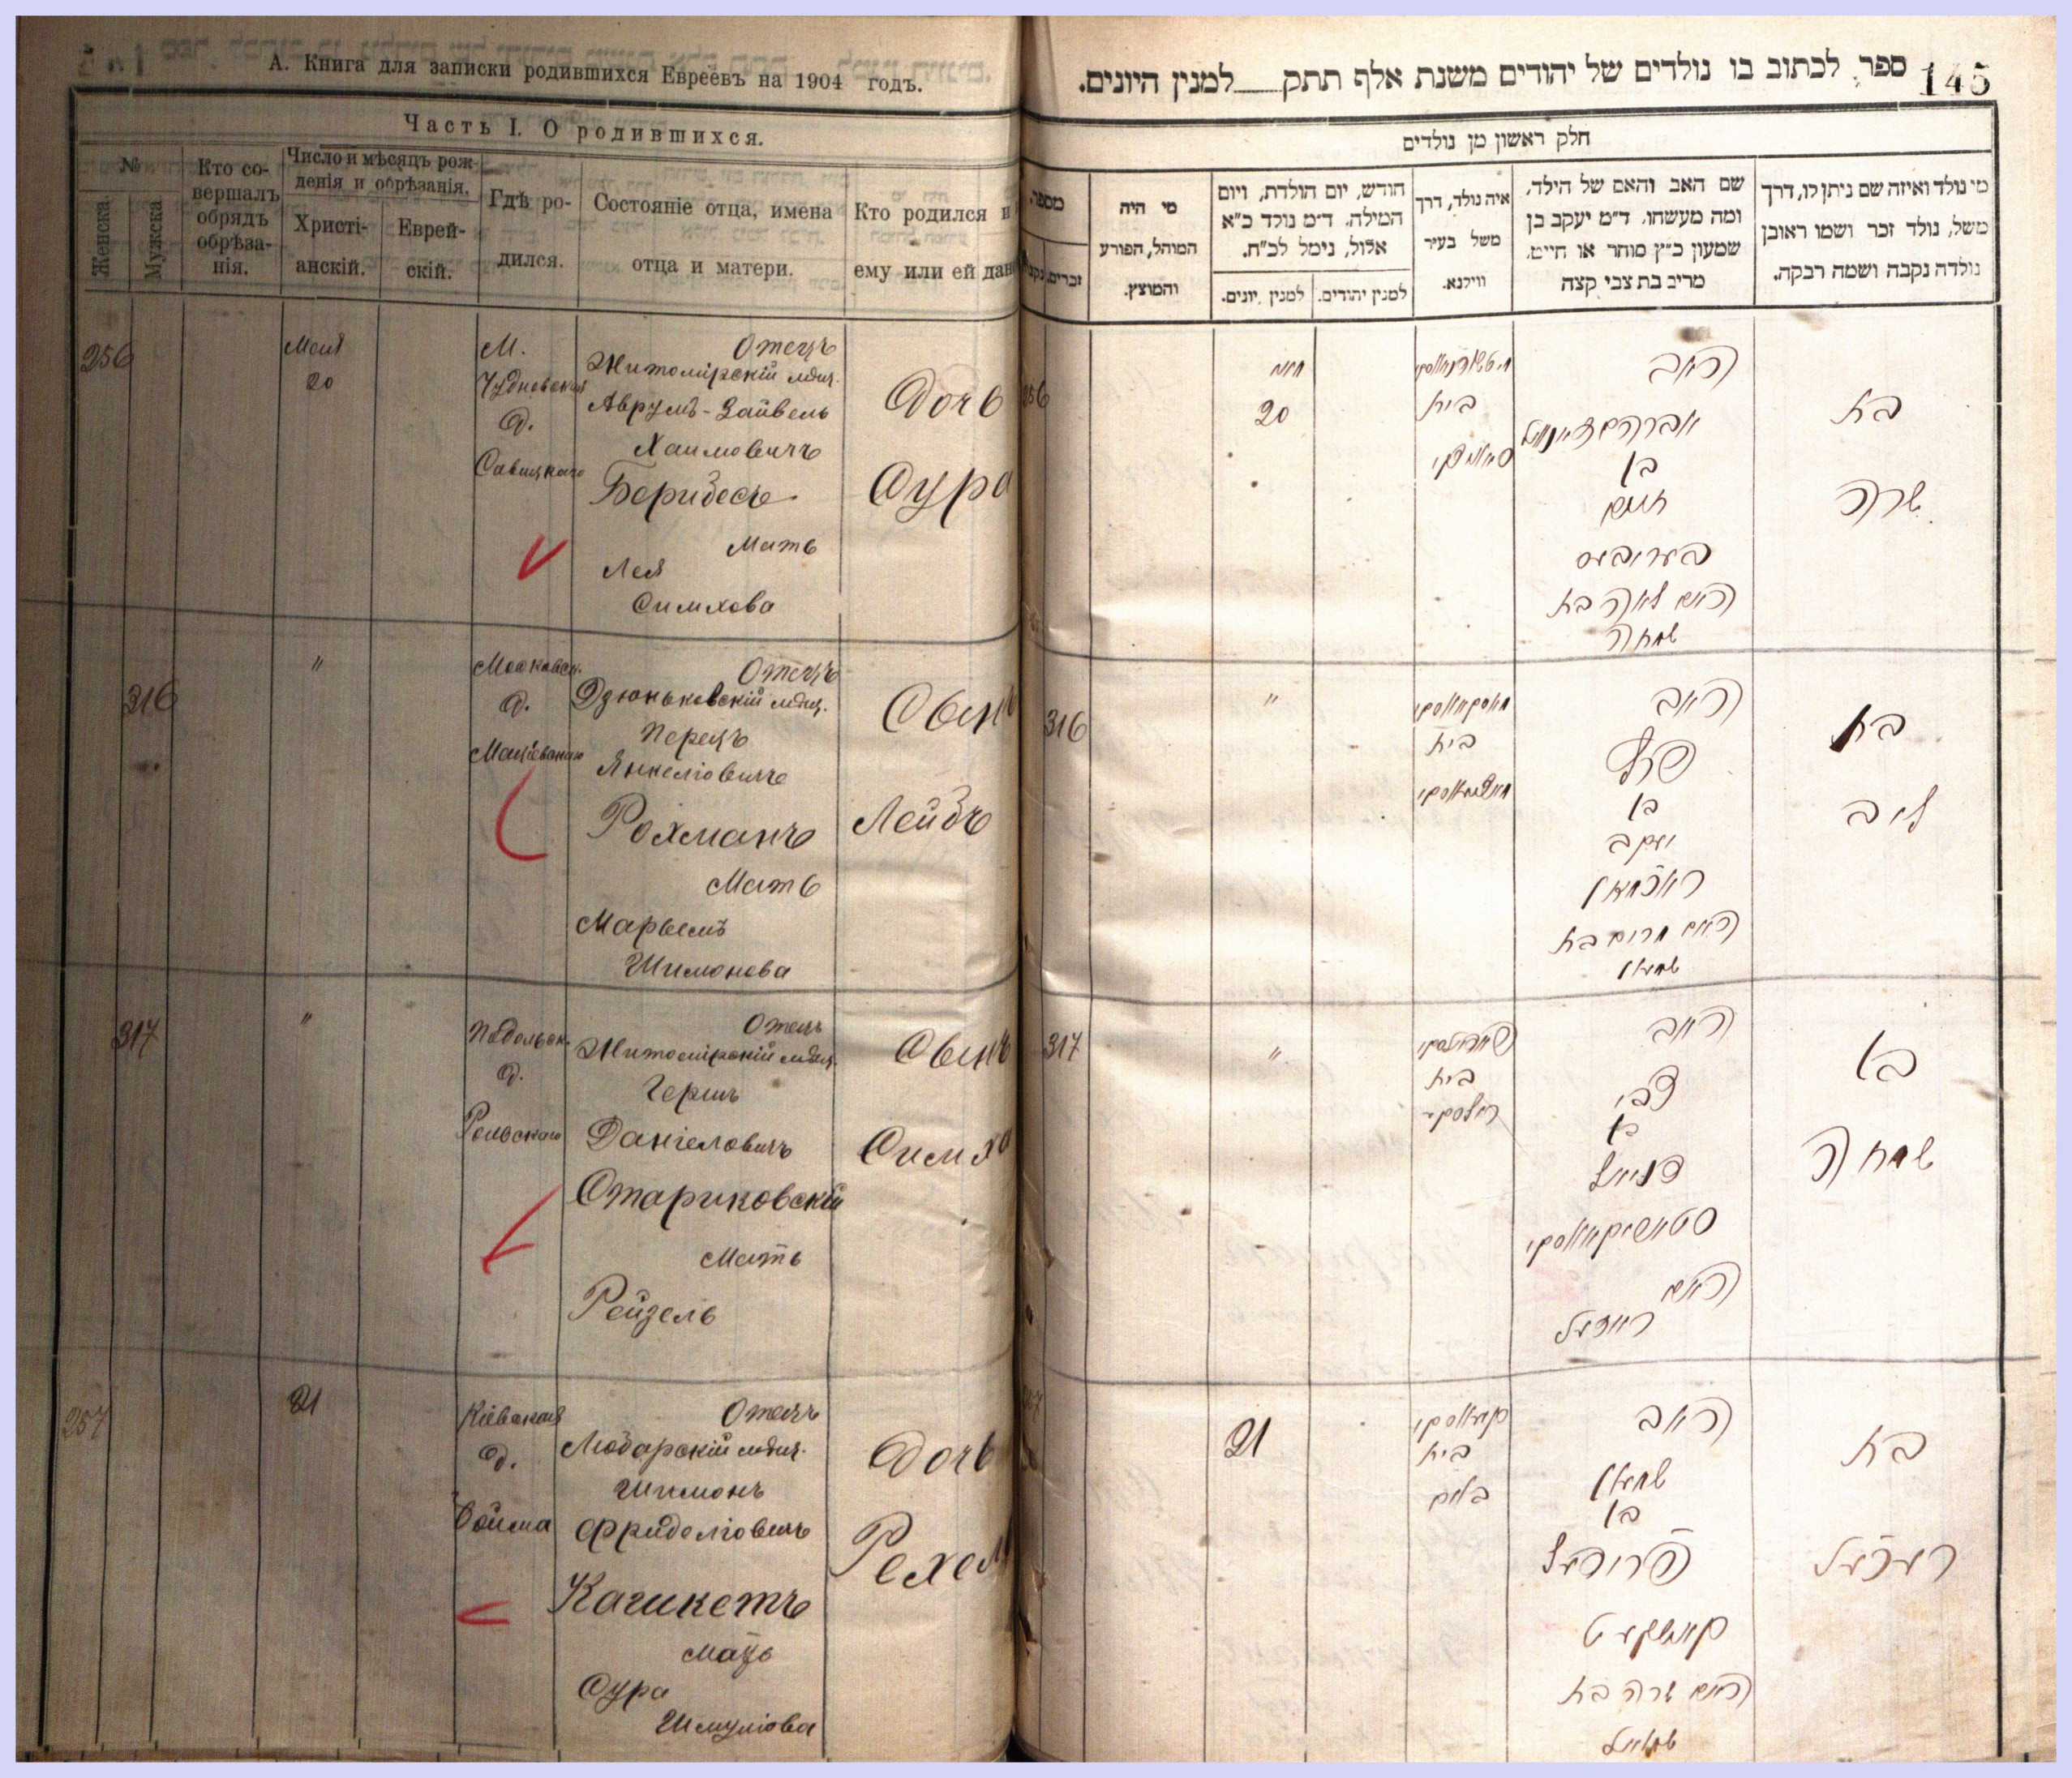 А. Книга для записки родившихся Евреевъ на 1904 годъ.
Часть I. О родившихся.
№
Женска.
Мужска
Кто со-
вершалъ
обрядъ
обрѣза-
нія.
Число и мѣсяцъ рож-
денія и обрѣзанія.
Христі-
анскій.
Еврей-
скій.
Гдѣ ро-
дился.
Состояніе отца, имена
отца и матери.
Кто родился и
ему или ей дан
256
Мая
20
М.
Чудновская
д.
Савицкаго
Отецъ
Житомірскій мѣщ.
Аврумъ-Зайвель
Хаимовичъ
Берибесъ
Мать
Лея
Симхова
Дочь
Сура
316
"
Московск.
д.
Отецъ
Дзюньковскій мѣщ.
Перецъ
Янкеліовичъ
Рохманъ
Мать
Марьемъ
Шимонова
Сынъ
Лейбъ
317
"
Подольск.
д.
Отецъ
Житомірскій мѣщ.
Гершъ
Даніеловичъ
Стариковскій
Мать
Рейзель
Сынъ
Симха
257
21
Кіевская
д.
Отецъ
Любарскій мѣщ.
Шимонъ
Фриделіовичъ
Качикетъ
Мать
Сура
Шмуліова
Дочь
Рехел
145
ספר לכתוב בו נולדים של יהודים משנת אלף תתק למנין היונים.
חלק ראשון מן נולדים
מי נולד ואיזה שם ניתן לו, דרך
משל, נולד זכר ושמו ראובן
נולדה נקבה ושמה רבקה.
שם האב והאם של הילד,
ומה מעשהו. ד״מ יעקב בן
שמעון כ״ץ סוחר או חייט,
מרים בת צבי קצה
איה נולד, דרך
משל בעיר
ווילנא.
חודש, יום הולדת, ויום
המילה. ד״מ נולד כ״א
אלול, נימל לכ״ח.
למנין יהודים.
למנין יונים.
מי היה
המוהל, הפורע
והמוצץ.
מספר.
זכרים
256
מאי
20
בית
האב
אברהם זיינוויל
בן
חיים
בעריבעס
האם לאה בת
שמחה
בת
שרה
316
"
בית
האב
פרץ
בן
יעקב
ראכמאן
האם מרים בת
שמעון
בת
ליב
317
"
בית
האב
צבי
בן
דניאל
האם
רייזעל
בן
שמחה
21
בית
בלום
האב
שמעון
בן
פרידעל
האם שרה בת
שמואל
בת
רעכעל